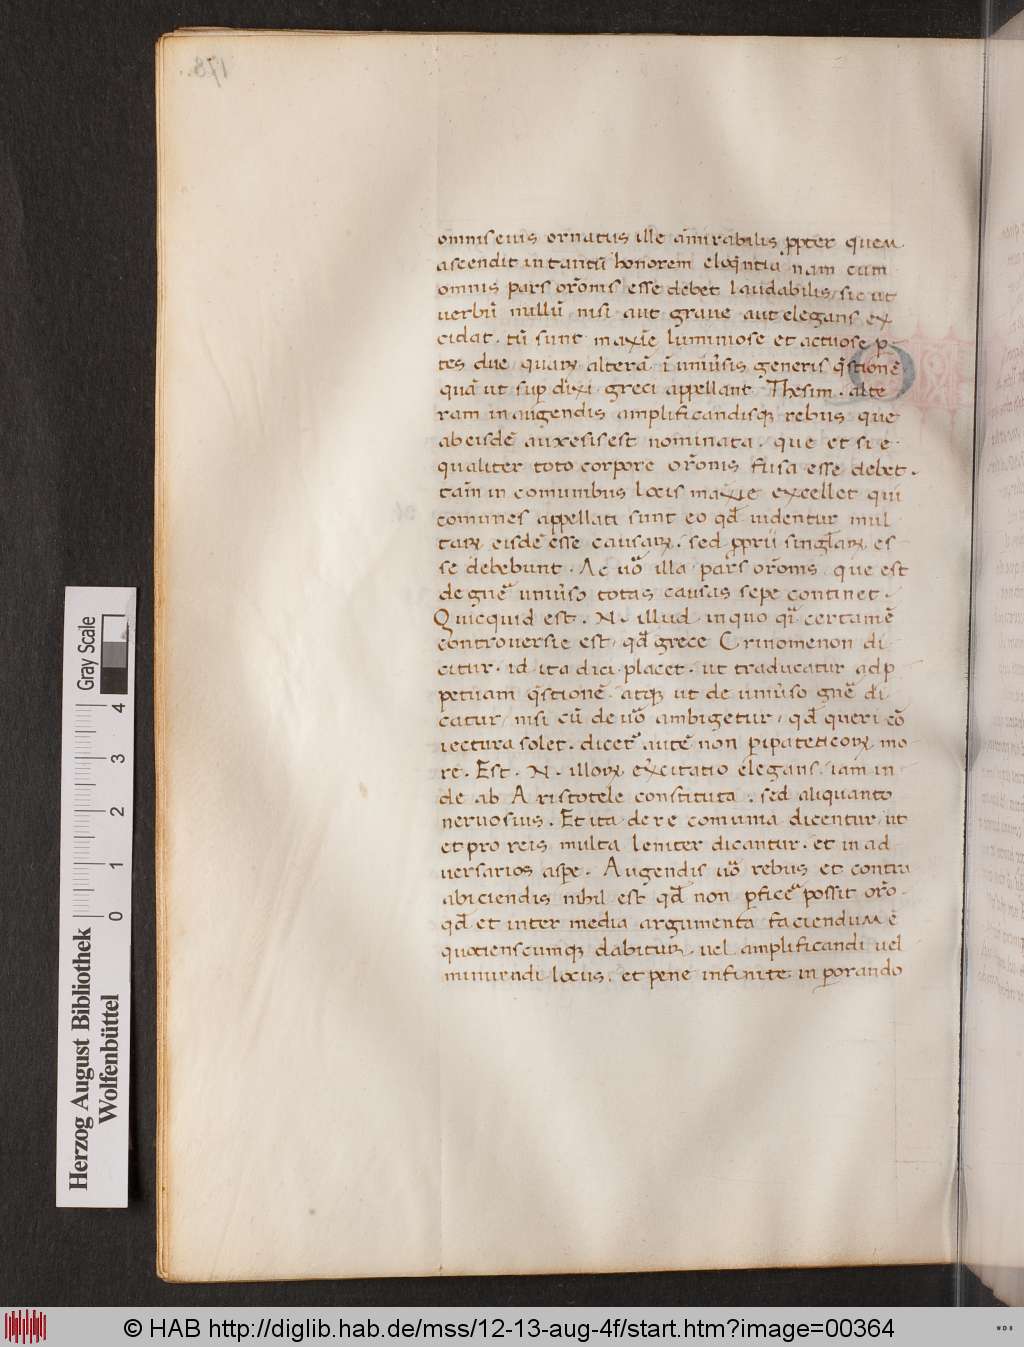 omnis eius ornatus ille amirabilis ꝓpter quem
ascendit in tantū honorem eloq̄ntia nam cum
omnis pars or̄onis esse debet laudabilis / sic ut
uerbū nullū nisi aut graue aut elegans ex
cidat . tū sunt maxīe luminose et actuose p
tes due quaꝝ alterā ī uniūsis generis q̄stionē
quā ut sup dixi greci appellant Thesim . alte
ram in augendis amplificandisqꝫ rebus que
ab eisdē auxesis est nominata . que et si e
qualiter toto corpore or̄onis fusa esse debet .
tam̄ in comunibus locis maxīe excellet qui
comunes appellati sunt eo qđ uidentur mul
taꝝ eisdē esse causaꝝ . sed ꝓprii singl̄aꝝ es
se debebunt . Ac uō illa pars or̄onis que est
de gn̄e uniūso totas causas sepe continet .
Quicquid est . N . illud in quo q̄i certamē
controuersie est , qđ grece Crinomenon di
citur . id ita dici placet . ut traducatur ad ꝑ
petuam q̄stionē . atqꝫ ut de uniūso gn̄e di
catur / nisi cū de uō ambigetur , qđ queri cō
iectura solet . dicet᷑ autē non ꝑipateticoꝝ mo
re . Est . N . illoꝝ exercitatio elegans . iam in
de ab Aristotele constituta . sed aliquanto
neruosius . Et ita de re comunia dicentur / ut
et pro reis multa leniter dicantur . et in ad
uersarios aspe . Augendis uō rebus et contra
abiciendis nihil est qđ non ꝑficē possit or̄o .
qđ et inter media argumenta faciendum ē
quotienscumqꝫ dabitur uel amplificandi uel
minuendi locus . et pene infinite in ꝑorando
Gray Scale
0 1 2 3 4
Herzog August Bibliothek
Wolfenbüttel
© HAB http://diglib.hab.de/mss/12-13-aug-4f/start.htm?image=00364